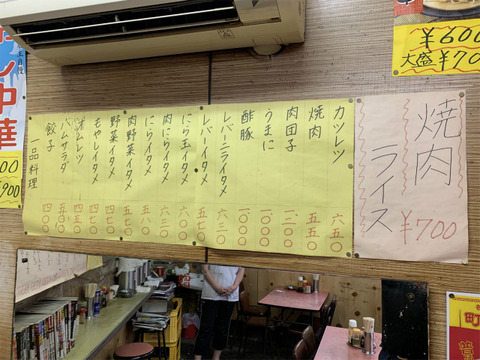 カツレツ 六五〇
焼肉 五五〇
肉団子 一二〇〇
うまに 一〇〇〇
酢豚 一〇〇〇
レバーニライタメ 六三〇
レバーイタメ 五七〇
にら玉イタメ 六〇〇
肉にらイタメ 六三〇
にらイタメ 五八〇
肉野菜イタメ 五二〇
野菜イタメ 四七〇
もやしイタメ 四七〇
オムレツ 四五〇
ハムサラダ 五〇〇
餃子 四〇〇
一品料理
焼肉
ライス
¥700
¥600
大盛¥70
冷し中華
00
900
町